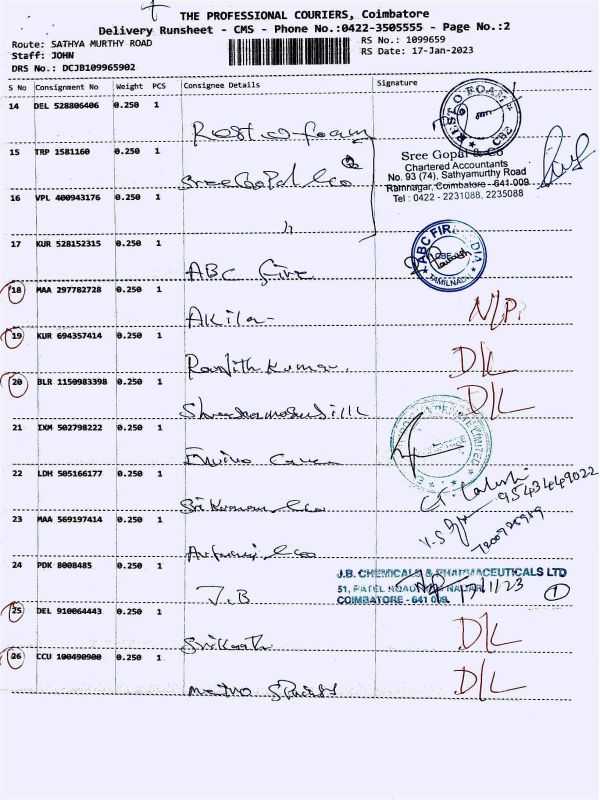 THE PROFESSIONAL COURIERS, Coimbatore
Delivery Runsheet - CMS - Phone No.:0422-3505555 - Page No.:2
Route: SATHYA MURTHY ROAD
RS No.: 1099659
Staff: JOHN
RS Date: 17-Jan-2023
DRS No.: DCJB109965902
S No Consignment No Weight PCS Consignee Details Signature
14 DEL 528806406 0.250 1
Rest o foam
REST O FOAM CBE
15 TRP 1581160 0.250 1
Sree Gopal & Co
Sree Gopal & Co
Chartered Accountants
No. 93 (74), Sathyamurthy Road
Ramnagar, Coimbatore - 641 009
Tel : 0422 - 2231088, 2235088
16 VPL 400943176 0.250 1
17 KUR 528152315 0.250 1
ABC Fire
ABC FIRE INDIA
TAMILNADU
18 MAA 297782728 0.250 1
Akila
N/P.
19 KUR 694357414 0.250 1
Ranjith Kumar.
D/L
20 BLR 1150983398 0.250 1
D/L
21 IXM 502798222 0.250 1
22 LDH 505166177 0.250 1
Sri Kumaran & Co
9543449022
23 MAA 569197414 0.250 1
& Co
24 PDK 8008485 0.250 1
J.B
J.B. CHEMICALS & PHARMACEUTICALS LTD
51, PATEL ROAD, RAM NAGAR,
COIMBATORE - 641 009.
17/1/23
1
25 DEL 910064443 0.250 1
Srikanth
D/L
26 CCU 100490900 0.250 1
Metro
D/L